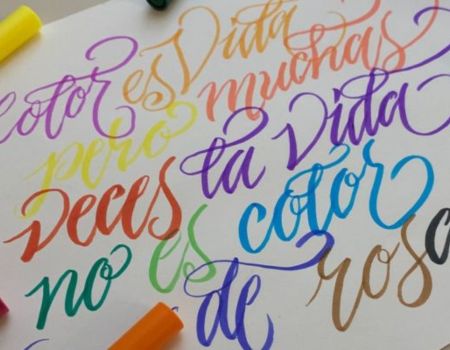 Color es Vida
pero muchas
veces la vida
no es color
de rosa